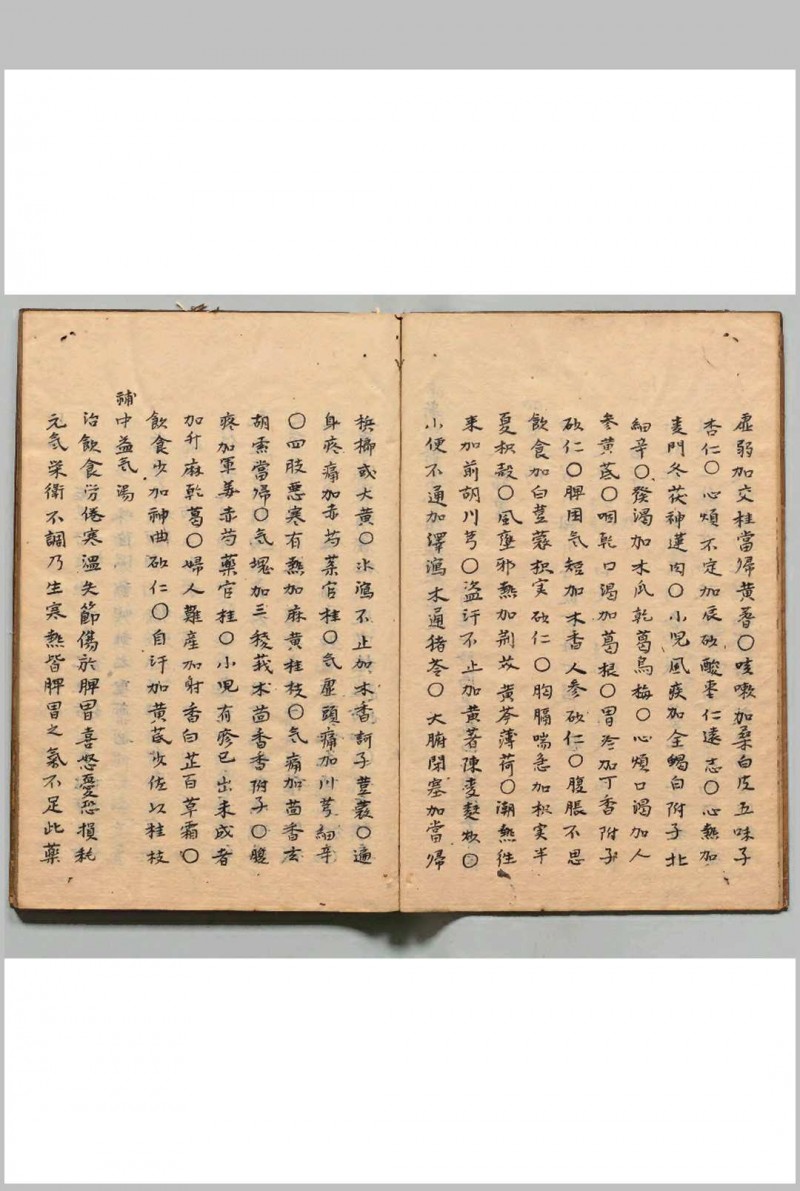 虚弱加交桂當帰黄耆〇咳嗽加桑白皮五味子
杏仁〇心煩不定加辰砂酸棗仁遠志〇心熱加
麦門冬茯神蓮肉〇小児風疾加全蝎白附子北
細辛〇發渴加木瓜乾葛烏梅〇心煩口渴加人
参黄芪〇咽乾口渴加葛根〇胃冷加丁香附子
砂仁〇脾困气短加木香人参砂仁〇腹脹不思
飲食加白荳蔻枳実砂仁〇胸膈喘急加枳実半
夏枳殻〇風壅邪熱加荆芥黄芩薄荷〇潮熱往
来加前胡川芎〇盗汗不止加黄蓍陳麦麩炒〇
小便不通加澤瀉木通猪苓〇大腑閉塞加當帰
梹榔或大黄〇水瀉不止加木香訶子荳蔲〇遍
身疼痛加赤芍薬官桂〇気虚頭痛加川芎細辛
〇四肢悪寒有熱加麻黄桂枝〇気痛加茴香玄
胡索當帰〇気塊加三稜莪朮茴香香附子〇腹
疼加軍姜赤芍藥官桂〇小児有疹已出未成者
加升麻乾葛〇婦人難産加射香白芷百草霜〇
飲食少加神曲砂仁〇自汗加黄芪少佐以桂枝
補中益気湯
治飲食労倦寒温失節傷於脾胃喜怒憂恐損耗
元気栄衛不調乃生寒熱皆脾胃之氣不足此藥